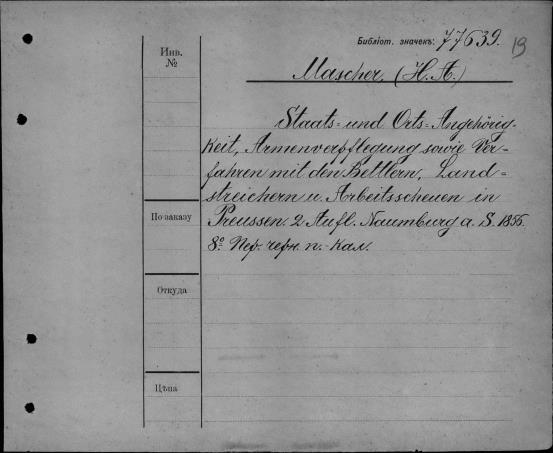 Библіот. значекъ: 77639.
19
Инв.
№
Mascher, (H. A.)
Staats- und Orts-Angehörig-
keit, Armenverpflegung sowie Ver-
fahren mit den Bettlern, Land-
streichern u. Arbeitsscheuen in
По заказу
Preussen. 2 Aufl. Naumburg a. S. 1856.
8º. Пер. черн. п.- кал.
Откуда
Цѣна